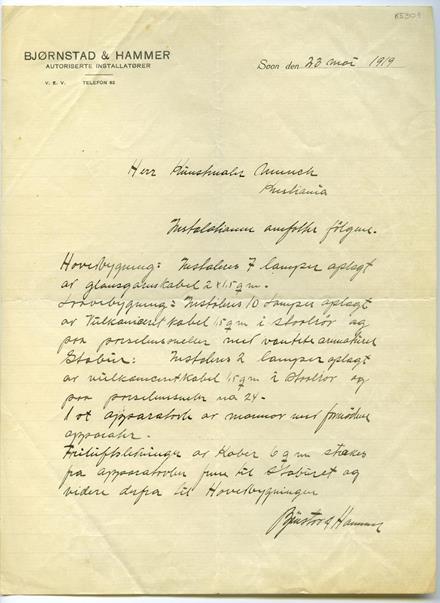 K5309
BJØRNSTAD & HAMMER
AUTORISERTE INSTALLATØRER
V. E. V. TELEFON 82
Soon den 23 mai 1919
Herr Kunstmaler Munch
Kristiania
Instalationen omfatter følgene.
Hovedbygning: Instaleres 7 lamper oplagt
av glansgarnskabel 2 x 1,5 q m.
bygning: Instaleres 10 Lamper oplagt
av Vulkaniceret kabel 1,5 q m i Staalrør og
paa porselensneller med vantette armaturer
Stabur: Instaleres 2 lamper oplagt
av vulkaniceretkabel 1,5 q m i Staalrør og
paa porselenssneller no 24-
1 st apparattavle av marmor med fornødne
apparater.
Friluftsledninger av Kober 6 q m strækes
fra apparattavlen frem til Staburet og
videre derfra til Hovedbygningen
Bjørnstad & Hammer